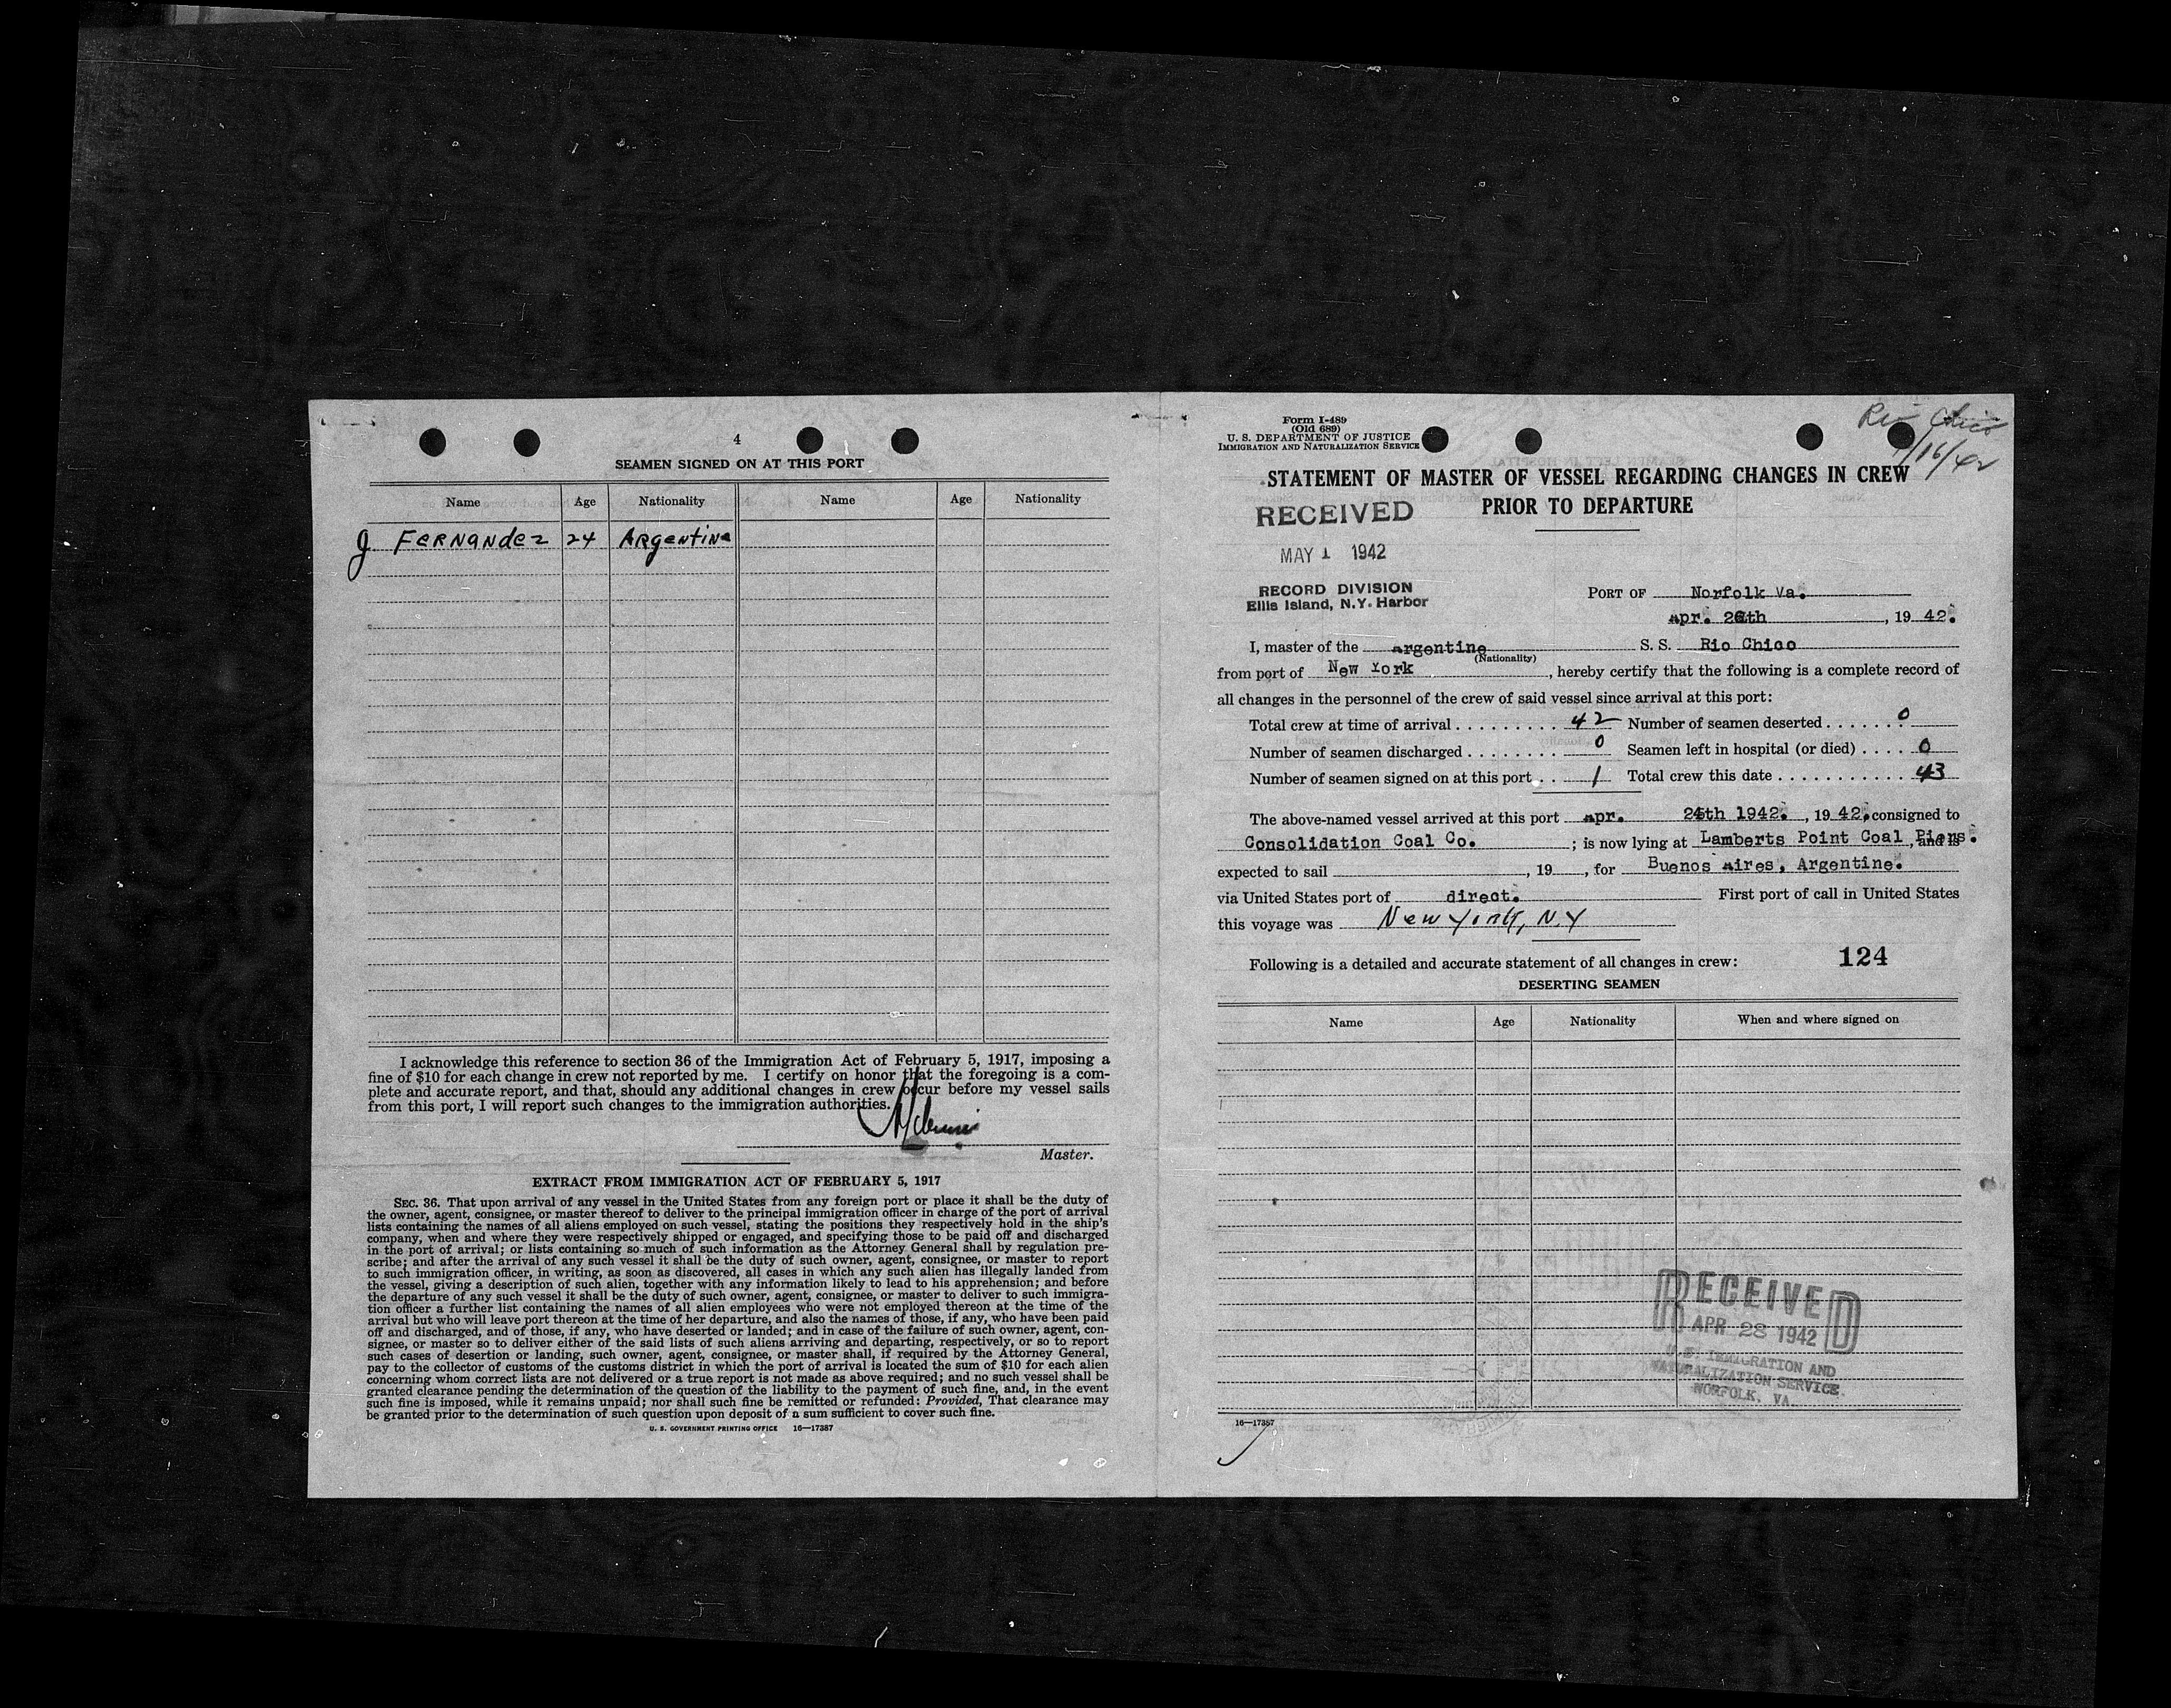 4
SEAMEN SIGNED ON AT THIS PORT
Name Age Nationality Name Age Nationality
J FERNANDEZ 24 ARGENTINE
I acknowledge this reference to section 36 of the Immigration Act of February 5, 1917, imposing a
fine of $10 for each change in crew not reported by me. I certify on honor that the foregoing is a com-
plete and accurate report, and that, should any additional changes in crew occur before my vessel sails
from this port, I will report such changes to the immigration authorities.
Master.
EXTRACT FROM IMMIGRATION ACT OF FEBRUARY 5, 1917
SEC. 36. That upon arrival of any vessel in the United States from any foreign port or place it shall be the duty of
the owner, agent, consignee, or master thereof to deliver to the principal immigration officer in charge of the port of arrival
lists containing the names of all aliens employed on such vessel, stating the positions they respectively hold in the ship's
company, when and where they were respectively shipped or engaged, and specifying those to be paid off and discharged
in the port of arrival; or lists containing so much of such information as the Attorney General shall by regulation pre-
scribe; and after the arrival of any such vessel it shall be the duty of such owner, agent, consignee, or master to report
to such immigration officer, in writing, as soon as discovered, all cases in which any such alien has illegally landed from
the vessel, giving a description of such alien, together with any information likely to lead to his apprehension; and before
the departure of any such vessel it shall be the duty of such owner, agent, consignee, or master to deliver to such immigra-
tion officer a further list containing the names of all alien employees who were not employed thereon at the time of the
arrival but who will leave port thereon at the time of her departure, and also the names of those, if any, who have been paid
off and discharged, and of those, if any, who have deserted or landed; and in case of the failure of such owner, agent, con-
signee, or master so to deliver either of the said lists of such aliens arriving and departing, respectively, or so to report
such cases of desertion or landing, such owner, agent, consignee, or master shall, if required by the Attorney General,
pay to the collector of customs of the customs district in which the port of arrival is located the sum of $10 for each alien
concerning whom correct lists are not delivered or a true report is not made as above required; and no such vessel shall be
granted clearance pending the determination of the question of the liability to the payment of such fine, and, in the event
such fine is imposed, while it remains unpaid; nor shall such fine be remitted or refunded: Provided, That clearance may
be granted prior to the determination of such question upon deposit of a sum sufficient to cover such fine.
U. S. GOVERNMENT PRINTING OFFICE 16—17387
Form I-489
(Old 689)
U. S. DEPARTMENT OF JUSTICE
IMMIGRATION AND NATURALIZATION SERVICE
Rio Chico
/16/42
STATEMENT OF MASTER OF VESSEL REGARDING CHANGES IN CREW
PRIOR TO DEPARTURE
RECEIVED
MAY 1 1942
RECORD DIVISION
Ellis Island, N.Y. Harbor
PORT OF Norfolk Va.
Apr. 26th, 19 42.
I, master of the Argentine S. S. Rio Chico
(Nationality)
from port of New York, hereby certify that the following is a complete record of
all changes in the personnel of the crew of said vessel since arrival at this port:
Total crew at time of arrival 42 Number of seamen deserted 0
Number of seamen discharged 0 Seamen left in hospital (or died) 0
Number of seamen signed on at this port 1 Total crew this date 43
The above-named vessel arrived at this port Apr. 24th 1942., 19 42, consigned to
Consolidation Coal Co. ; is now lying at Lamberts Point Coal Piers., and is
expected to sail , 19 , for Buenos Aires, Argentine.
via United States port of direct. First port of call in United States
this voyage was New York, N.Y
Following is a detailed and accurate statement of all changes in crew: 124
DESERTING SEAMEN
Name Age Nationality When and where signed on
RECEIVED
APR 28 1942
U.S. IMMIGRATION AND
NATURALIZATION SERVICE
NORFOLK, VA.
16—17387